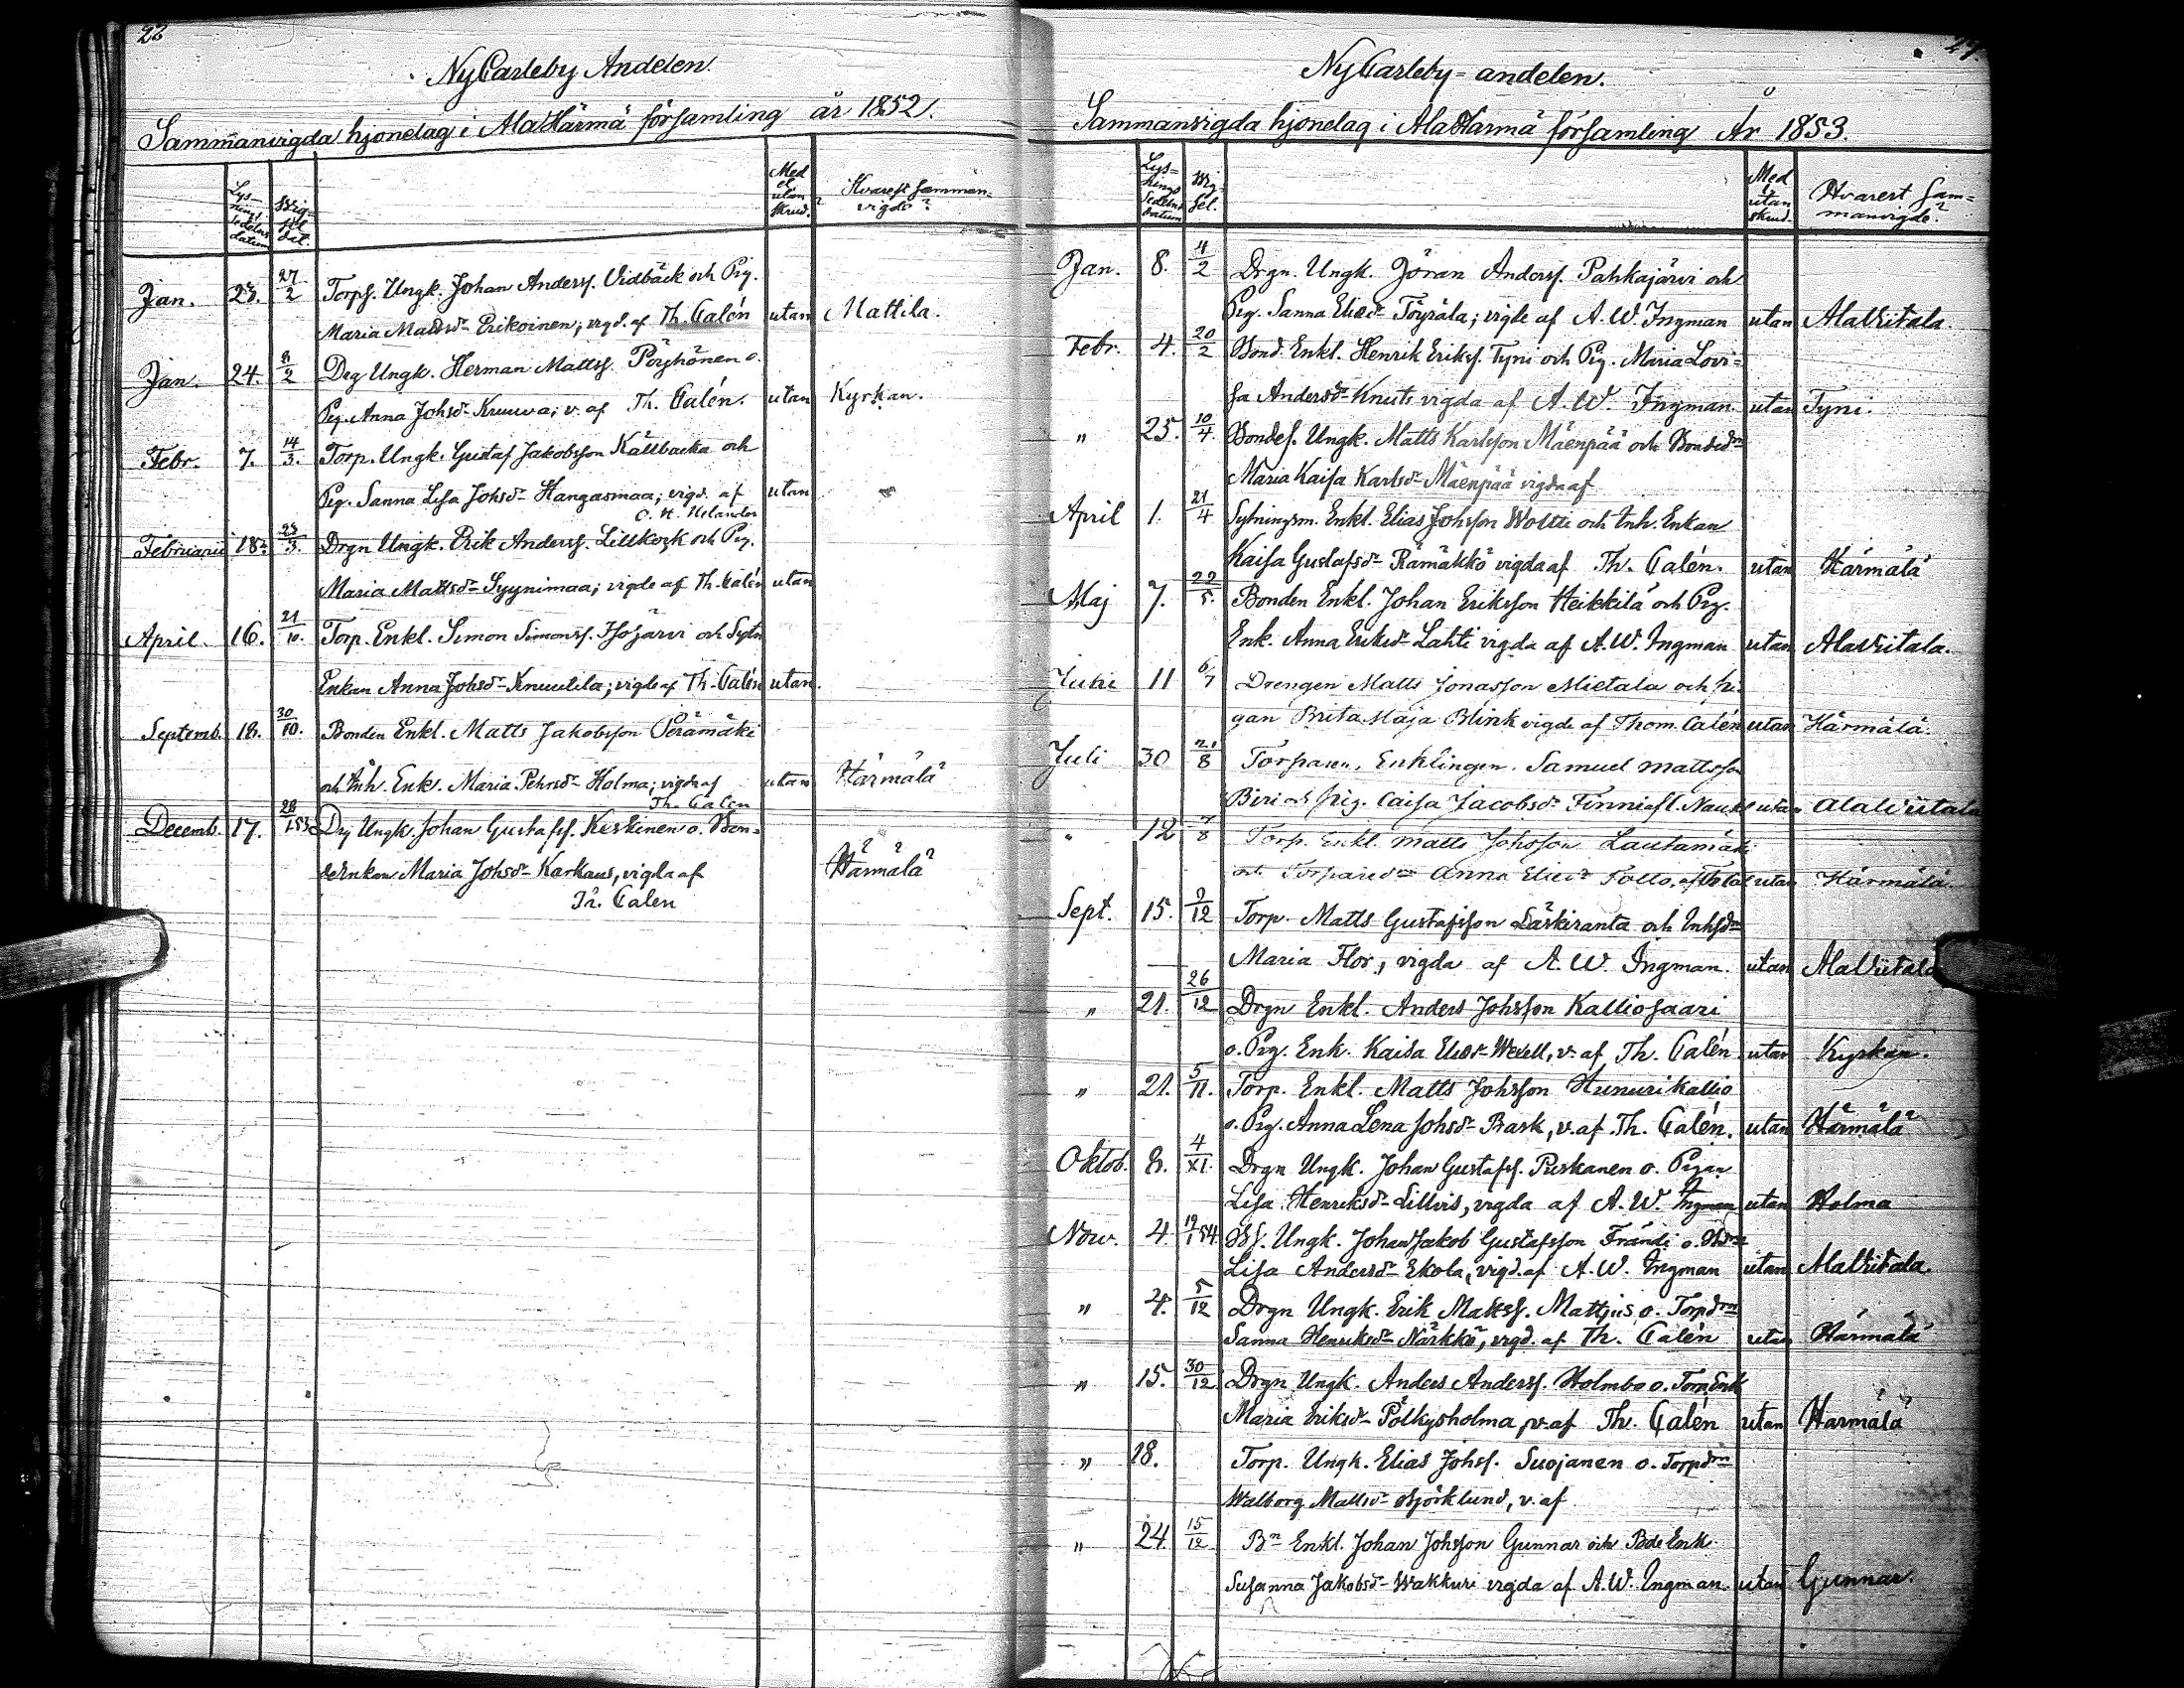 22
NyCarleby Andelen.
Sammanvigda hjonelag i AlaHärmä församling år 1852.
Lys-
nings
Sedelns
datum
Vig-
sel
dat.
Med
el.
utan
skrud.
Hvarest samman-
vigde?
Jan. 23. 27/2 Torps. Ungk. Johan Anderss. Vidbäck och Pig.
Maria Mattsdr Erikoinen; vigd. af Th. Calén utan Mattila.
Jan. 24. 8/2 Drg Ungk. Herman Mattss. Pöyhönen o.
Pig. Anna Johsdr Kruuva; v. af Th. Calén. utan Kyrkan.
Febr. 7. 14/3. Torp. Ungk. Gustaf Jakobsson Källbacka och
Pig. Sanna Lisa Johsdr Hangasmaa; vigd. af utan
O. H. Helander
Februarii 18. 25/3. Drgn Ungk. Erik Anderss. Lillkork och Pig.
Maria Mattsdr Syynimaa; vigde af Th. Calén utan
April. 16. 21/10. Torp. Enkl. Simon Simonss. Isojärvi och Sytn
Enkan Anna Johsdr Knuutila; vigde af Th. Calén utan.
Septemb. 18. 30/10. Bonden Enkl. Matts Jakobsson Perämäki
och Inh. Enk. Maria Pehrsdr Holma; vigda af utan Härmälä
Th. Calen
Decemb. 17. 28/1.53 Drg Ungk. Johan Gustafss. Keskinen o. Bon-
deenkan Maria Johsdr Karhaus, vigda af Härmälä
Th. Calen
27.
NyCarleby-andelen.
Sammanvigda hjonelag i AlaHarmä församling År 1853.
Lys-
nings
Sedelns
datum
Vig-
sel.
Med
el.
utan
skrud.
Hvarest Sam-
manvigde?
Jan. 8. 4/2 Drgn. Ungk. Jöran Anderss. Pahkajärvi och
Pig. Sanna Eliedr Töyrälä; vigde af A. W. Ingman utan AlaViitala.
Febr. 4. 20/2 Bond. Enkl. Henrik Erikss. Tyni och Pig. Maria Lovi-
sa Andersdr Knuts vigda af A. W. Ingman utan Tyni.
" 25. 10/4. Bondes. Ungk. Matts Karlsson Mäenpää och Bondedn
Maria Kaisa Karlsdr Mäenpää vigda af
April 1. 21/4 Sytningsm. Enkl. Elias Johsson Woltti och Inh. Enkan
Kaisa Gustafsdr Rämäkkö vigda af Th. Calén. utan Härmälä
Maj 7. 22/5. Bonden Enkl. Johan Eriksson Heikkilä och Pig.
Enk. Anna Eriksdr Lahti vigda af A. W. Ingman utan AlaViitala.
Juni 11 6/7 Drengen Matts Jonasson Mietala och Pi-
gan Brita Maja Blink vigde af Thom. Calén utan Härmälä.
Juli 30 21/8 Torparen, Enklingen. Samuel Mattsson
Biri och Pig. Caisa Jacobsdr Finni utan AlaViitala
" 12 7/8 Torp. Enkl. Matts Johsson Lautamäki
och Torparedn Anna Eliedr utan Härmälä.
Sept. 15. 9/12 Torp. Matts Gustafsson Laskiranta och Inhsdn
Maria Flor, vigda af A. W. Ingman. utan AlaViitala
" 21. 26/12 Drgn Enkl. Anders Johsson Kalliosaari
o. Pig. Enk. Kaisa Eliedr Wexell, v. af Th. Calén utan Kyrkan.
" 21. 5/11. Torp. Enkl. Matts Johsson Hunurikallio
o. Pig. Anna Lena Johsdr Bask, v. af Th. Calén. utan Härmälä
Oktob. 8. 4/XI. Drgn Ungk. Johan Gustafss. Puskanen o. Pigan
Lisa Henriksdr Lillvis, vigda af A. W. Ingman utan Holma
Nov. 4. 19/1 54 Bs. Ungk. Johan Jakob Gustafsson Frändi o.
Lisa Andersdr Ekola, vigd. af A. W. Ingman utan AlaViitala.
" 4. 5/12 Drgn Ungk. Erik Matss. Mattjus o. Torpdrn
Sanna Henriksdr Närkkö, vigd. af Th. Calén utan Härmälä
" 15. 30/12 Drgn Ungk. Anders Anderss. Holmbo o. Torp. Enk
Maria Eriksdr Pölkysholma, v. af Th. Calén utan Härmälä
" 18. Torp. Ungk. Elias Johss. Suojanen o. Torpdrn
Walborg Mattsdr Björklund, v. af
" 24. 15/12 Bn Enkl. Johan Johsson Gunnar och Bde Enk.
Susanna Jakobsdr Wakkuri vigda af A. W. Ingman. utan Gunnar.